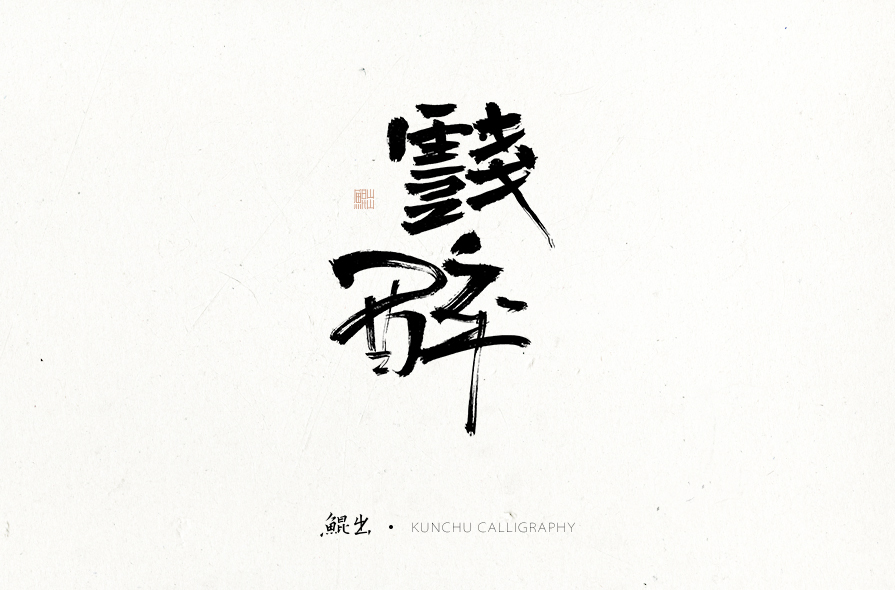 戲
醉
鯤出
鯤出 • KUNCHU CALLIGRAPHY